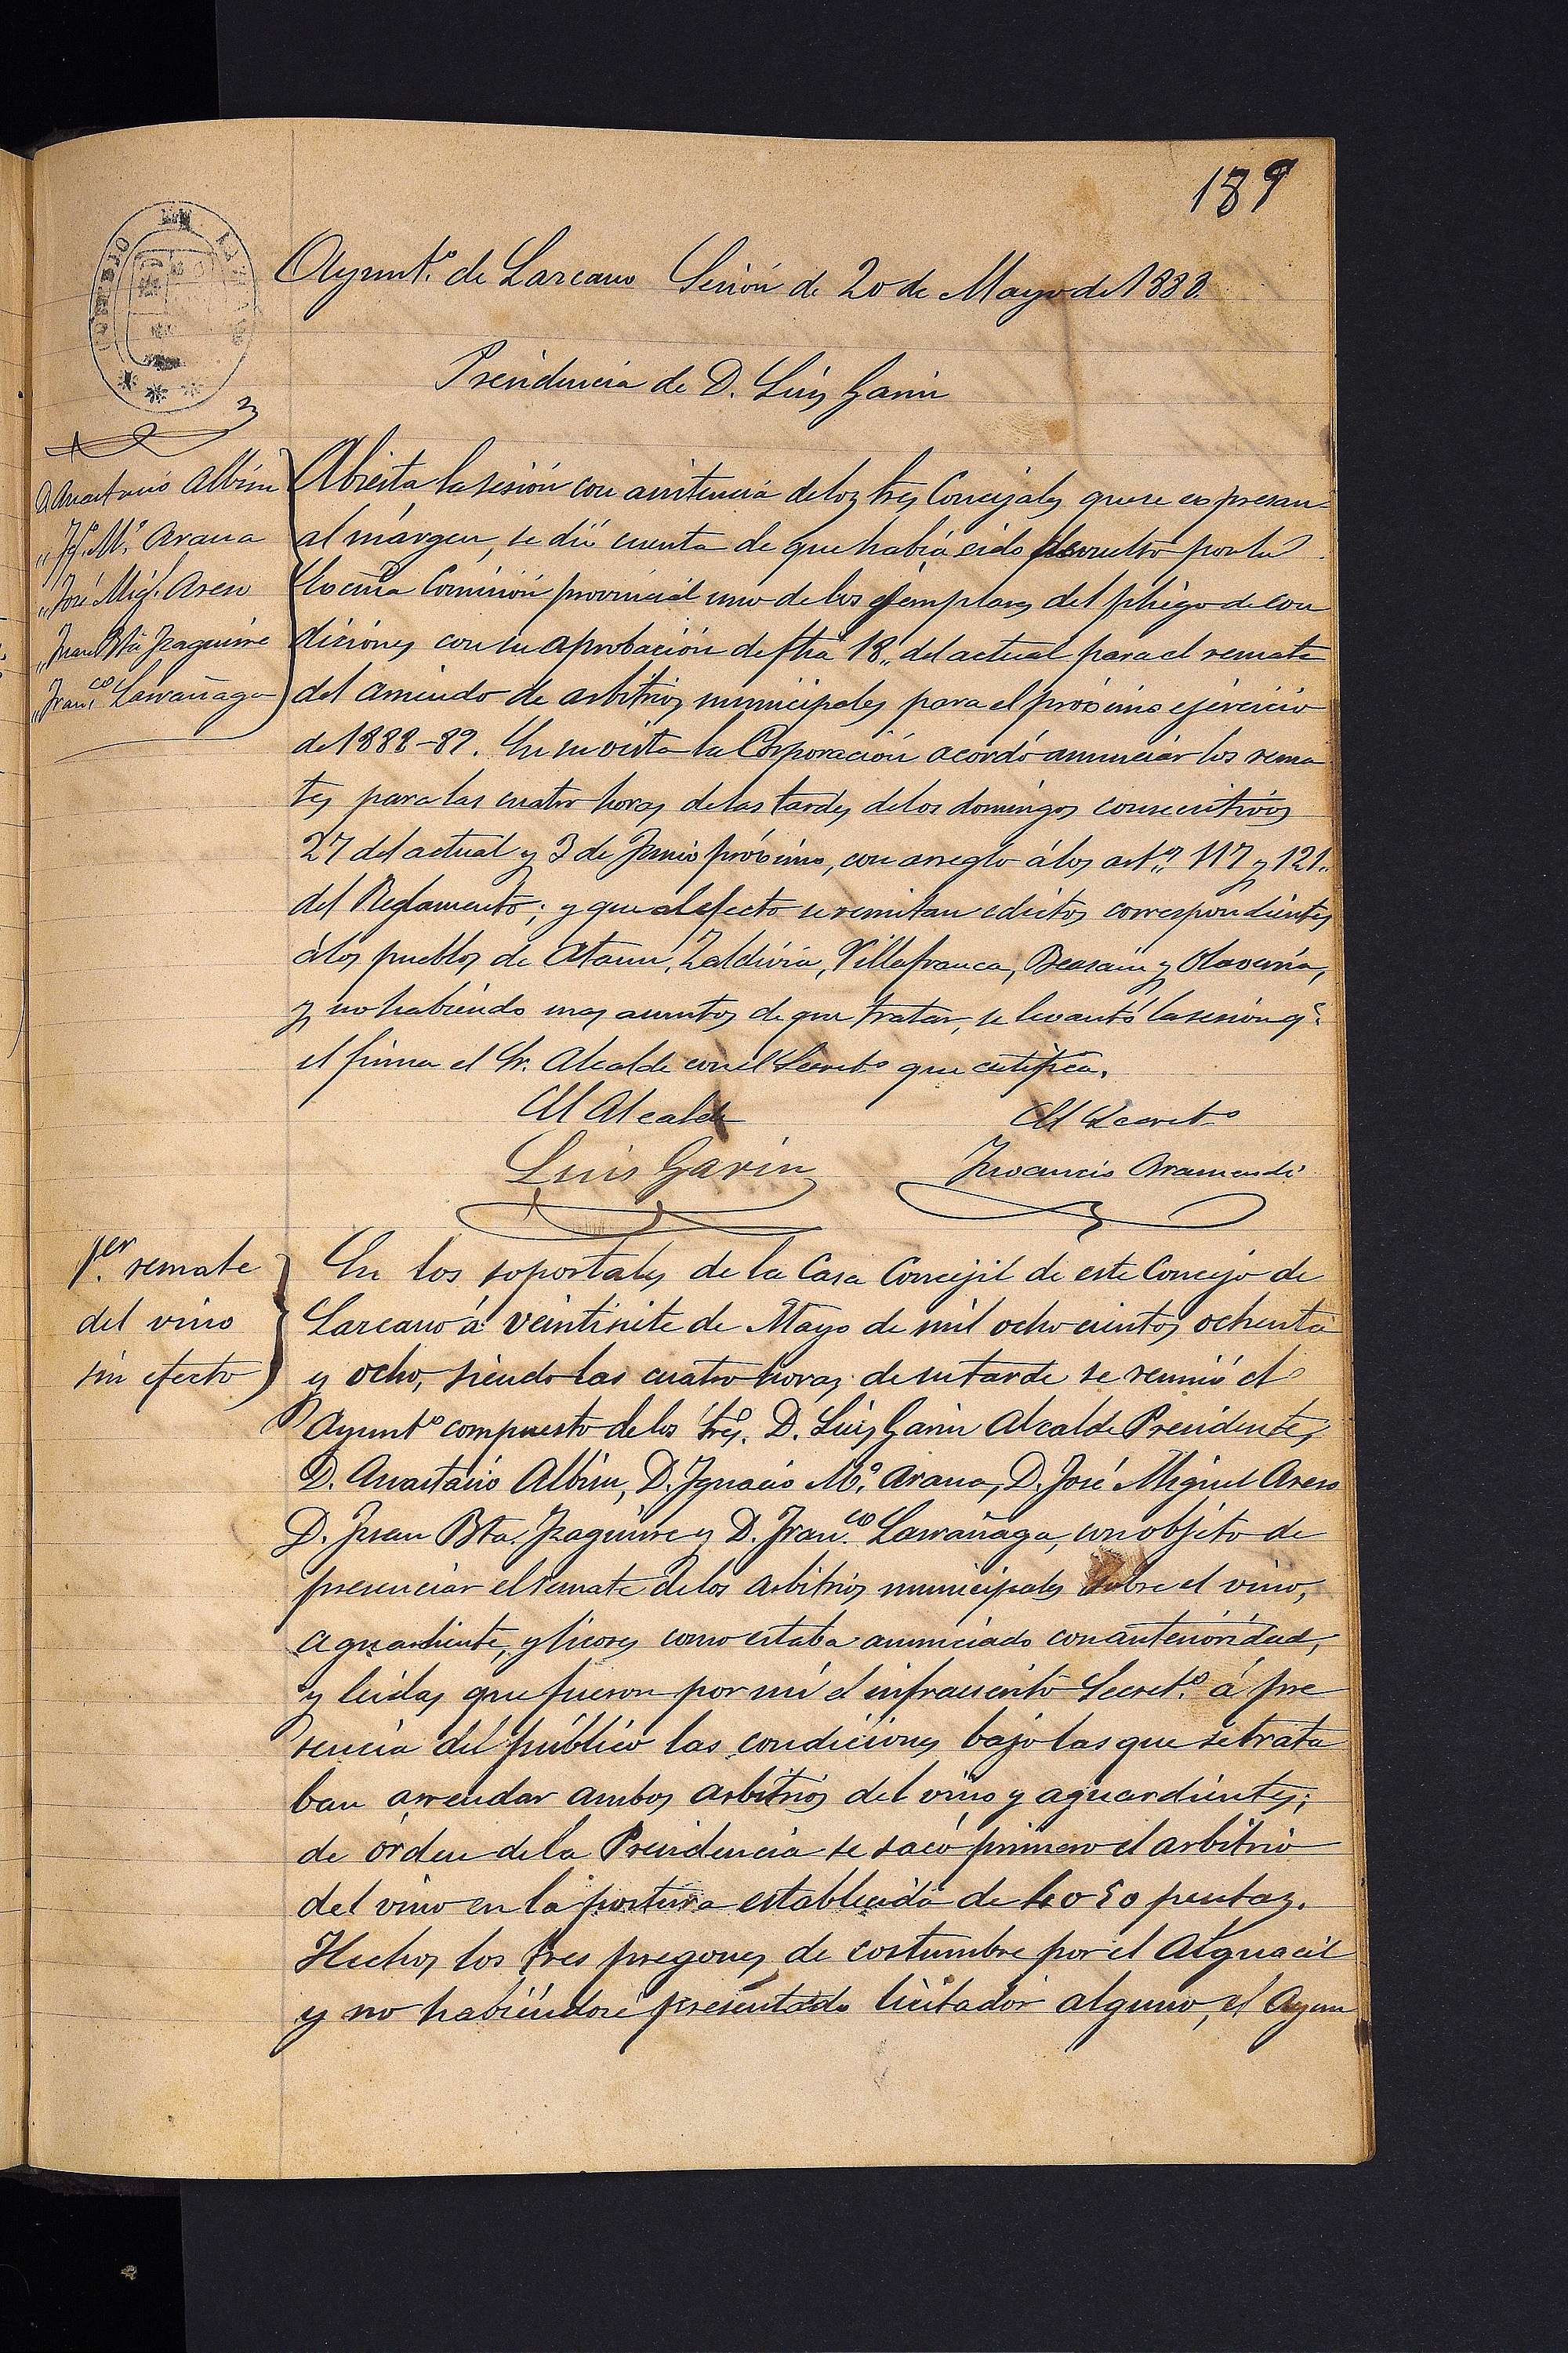 189
Ayunt.º de Lazcano Sesión de 20 de Mayo de 1888.
Presidencia de D. Luis Garin
D. Anastasio Albisu
„ Ig.º M.ª Arana
„ José Mig.l Aseso
„ Juan Bta Izaguirre
„ Fran.co Larrañaga
Abierta la sesión con asistencia de los Sres Concejales que se espresan
al márgen, se dió cuenta de que había sido devuelto por la
Excma Comisión provincial uno de los ejemplares del pliego de con
diciones con su aprobación de fha 18„ del actual para el remate
del arriendo de arbitrios municipales para el próximo ejercicio
de 1888-89. En su vista la Corporación acordó anunciar los rema
tes para las cuatro horas de las tardes de los domingos consecutivos
27 del actual y 3 de Junio próximo, con arreglo á los art.s 117 y 121„
del Reglamento; y que al efecto se remitan edictos correspondientes
á los pueblos de Ataun, Zaldivia, Villafranca, Beasain y Olaverria,
y no habiendo mas asuntos de que tratar, se levantó la sesion q.e
el firma el Sr. Alcalde con el Secret.º que certifica.
El Alcalde
El Secret.º
Luis Garin
Juvencio Aramendi
1.er remate
del vino
sin efecto
En los soportales de la Casa Concejil de este Concejo de
Lazcano á veintisiete de Mayo de mil ochocientos ochenta
y ocho, siendo las cuatro horas de su tarde se reunió el
Ayunt.º compuesto de los Sres. D. Luis Garin Alcalde Presidente,
D. Anastasio Albisu, D. Ignacio M.ª Arana, D. José Miguel Aseso
D. Juan Bta. Izaguirre y D. Fran.co Larrañaga, con objeto de
presenciar el remate de los arbitrios municipales sobre el vino,
aguardiente, y licores como estaba anunciado con anterioridad,
y leidas que fueron por mí el infrascrito Secret.º á pre
sencia del público las condiciones bajo las que se trata
ban arrendar ambos arbitrios del vino y aguardientes;
de órden de la Presidencia se sacó primero el arbitrio
del vino en la postura establecida de 4050 pesetas.
Hechos los tres pregones de costumbre por el Alguacil
y no habiéndose presentado licitador alguno, el Ayun